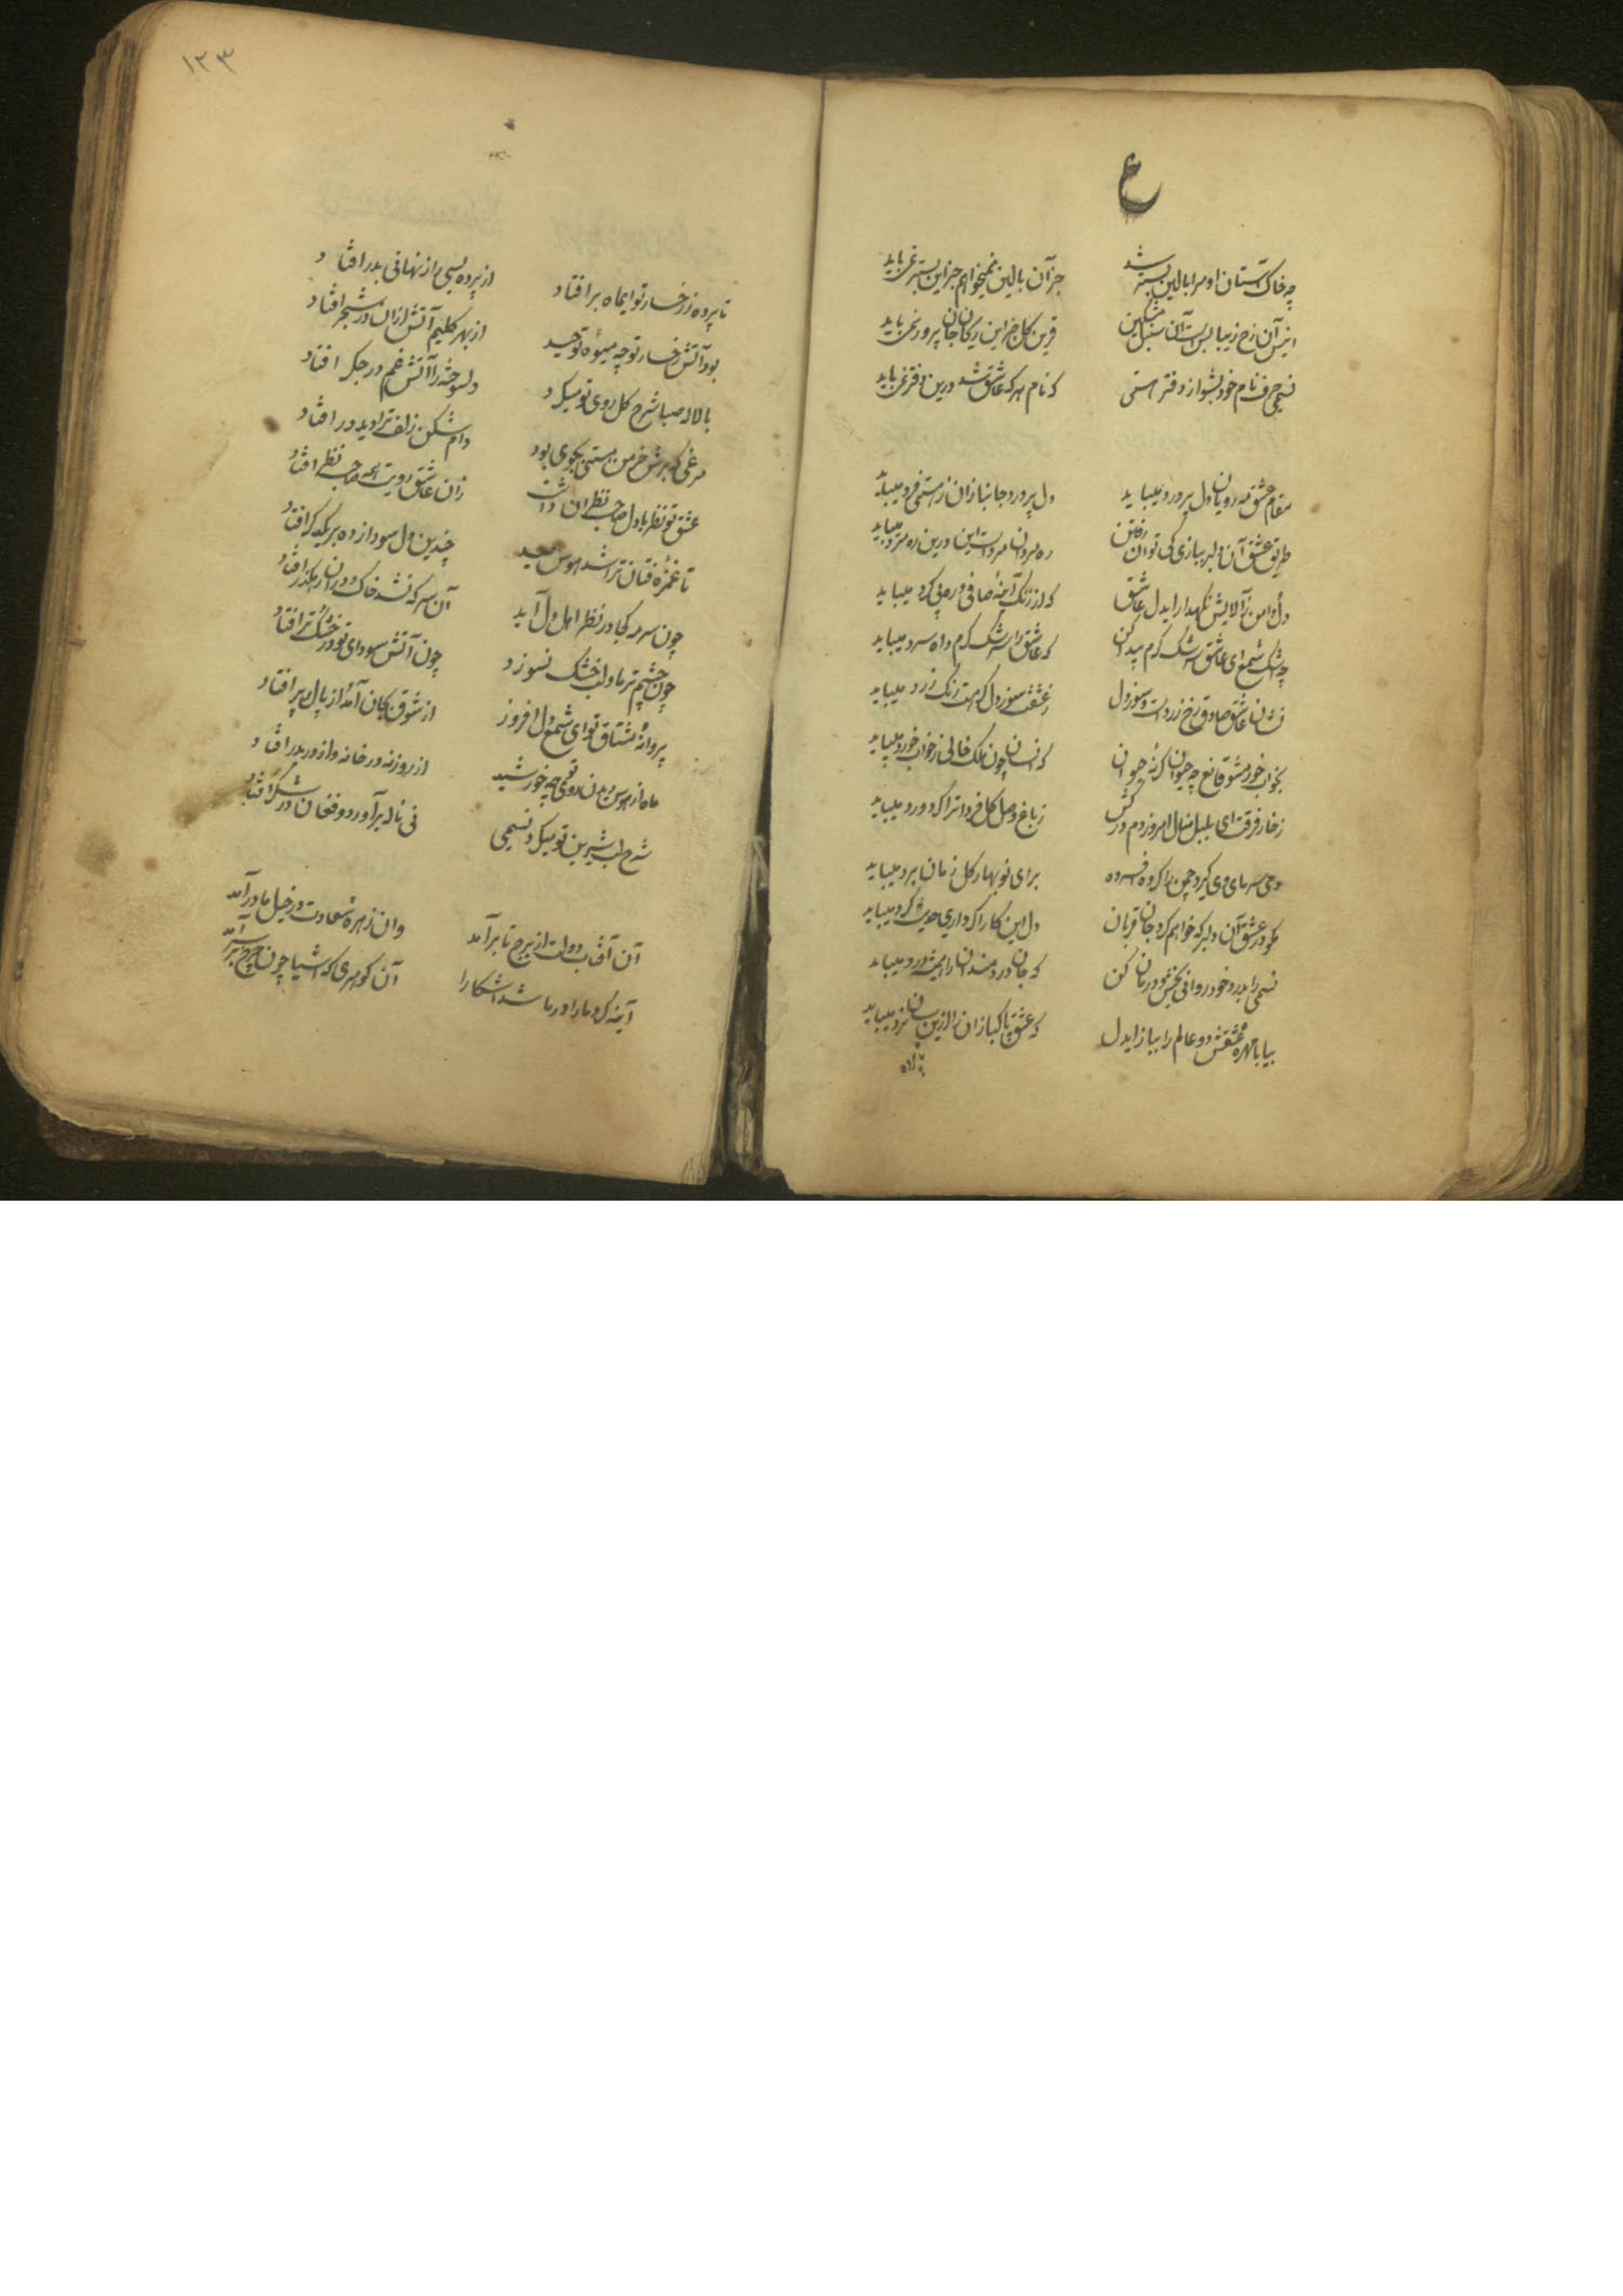 ع
چه خاک آستان او مرا بالین و بستر شد جز آن بالین نمیخواهم جز این بستر نمی‌باید
انیس آن رخ زیبا بس است آن سنبل مشکین قرین گل جز این ریحان جان پرور نمی‌باید
نسیمی حرف نام خود بشو از دفتر هستی که نام هر که عاشق شد درین دفتر نمی‌باید
مقام عشق مه رویان دل پر درد میباید دل پر درد جانبازان ز هستی فرد میباید
طریق عشق آن دلبر ببازی کی توان رفتن ره مردان مرد است این درین ره مرد میباید
دل و دامن ز آلایش نگهدار ایدل عاشق که از زنگ آینه صافی و ره بی گرد میباید
چه اشک شمع ای عاشق سرشک گرم پیدا کن که عاشق را سرشک گرم و آه سرد میباید
نشان عاشق صادق رخ زرد است و سوز دل ز عشقت سوز دل گر هست رنگ زرد میباید
بخواب و خور مشو قانع چه حیوان گر نه حیوان که انسان چون ملک خالی ز خواب و خورد میباید
ز خار فرقت ای بلبل منال امروز دم درکش ز باغ وصل گل فردا ترا گر ورد میباید
دمی سرمای دی گیرد چمن را گر ده افسرده برای نوبهار گل زمان برد میباید
مگو در عشق آن دلبر که خواهم کرد جان قربان دل این کار اگر داری حدیث کرد میباید
نسیمی را بدرد خود روانی بخش و درمان کن که جان دردمندان را همیشه درد میباید
بیا با مهره عشقش دو عالم را بباز ایدل که عشق پاکبازان را ازین سان نرد میباید
۱۲۳
تا پرده ز رخسار تو ایماه برافتاد از پرده بسی راز نهانی بدر افتاد
بود آتش رخسار تو چه میوه توحید از بهر کلیم آتش ازان در شجر افتاد
با لاله صبا شرح گل روی تو میکرد دلسوخته را آتش غم در جگر افتاد
مرغی که برش خرمن هستی بجوی بود دام شکن زلف ترا دید در افتاد
عشق تو نظر با دل صاحب نظران داشت زان عاشق رویت همه صاحب نظر افتاد
تا غمزه فتان ترا شد هوس صید چندین دل سودا زده بر یکدگر افتاد
چون سرمه کجا در نظر اهل دل آید آن سر که نشد خاک و در آن رهگذر افتاد
چون چشم تر ما و لب خشک نسوزد چون آتش سودای تو در خشک و تر افتاد
پروانه مشتاق تو ای شمع دل افروز از شوق بجان آمد از بال و پر افتاد
ماه از هوس دیدن روی چه خورشید از روزنه در خانه و از در بدر افتاد
شرح لب شیرین تو میکرد نسیمی نی ناله برآورد و فغان در شکر افتاد
آن آفتاب دولت از برج ما برآمد وان زهره سعادت در خیل ما درآمد
آینه کرد ما را در ما شد آشکارا آن گوهری که اشیا چون چرخ بر سر آمد